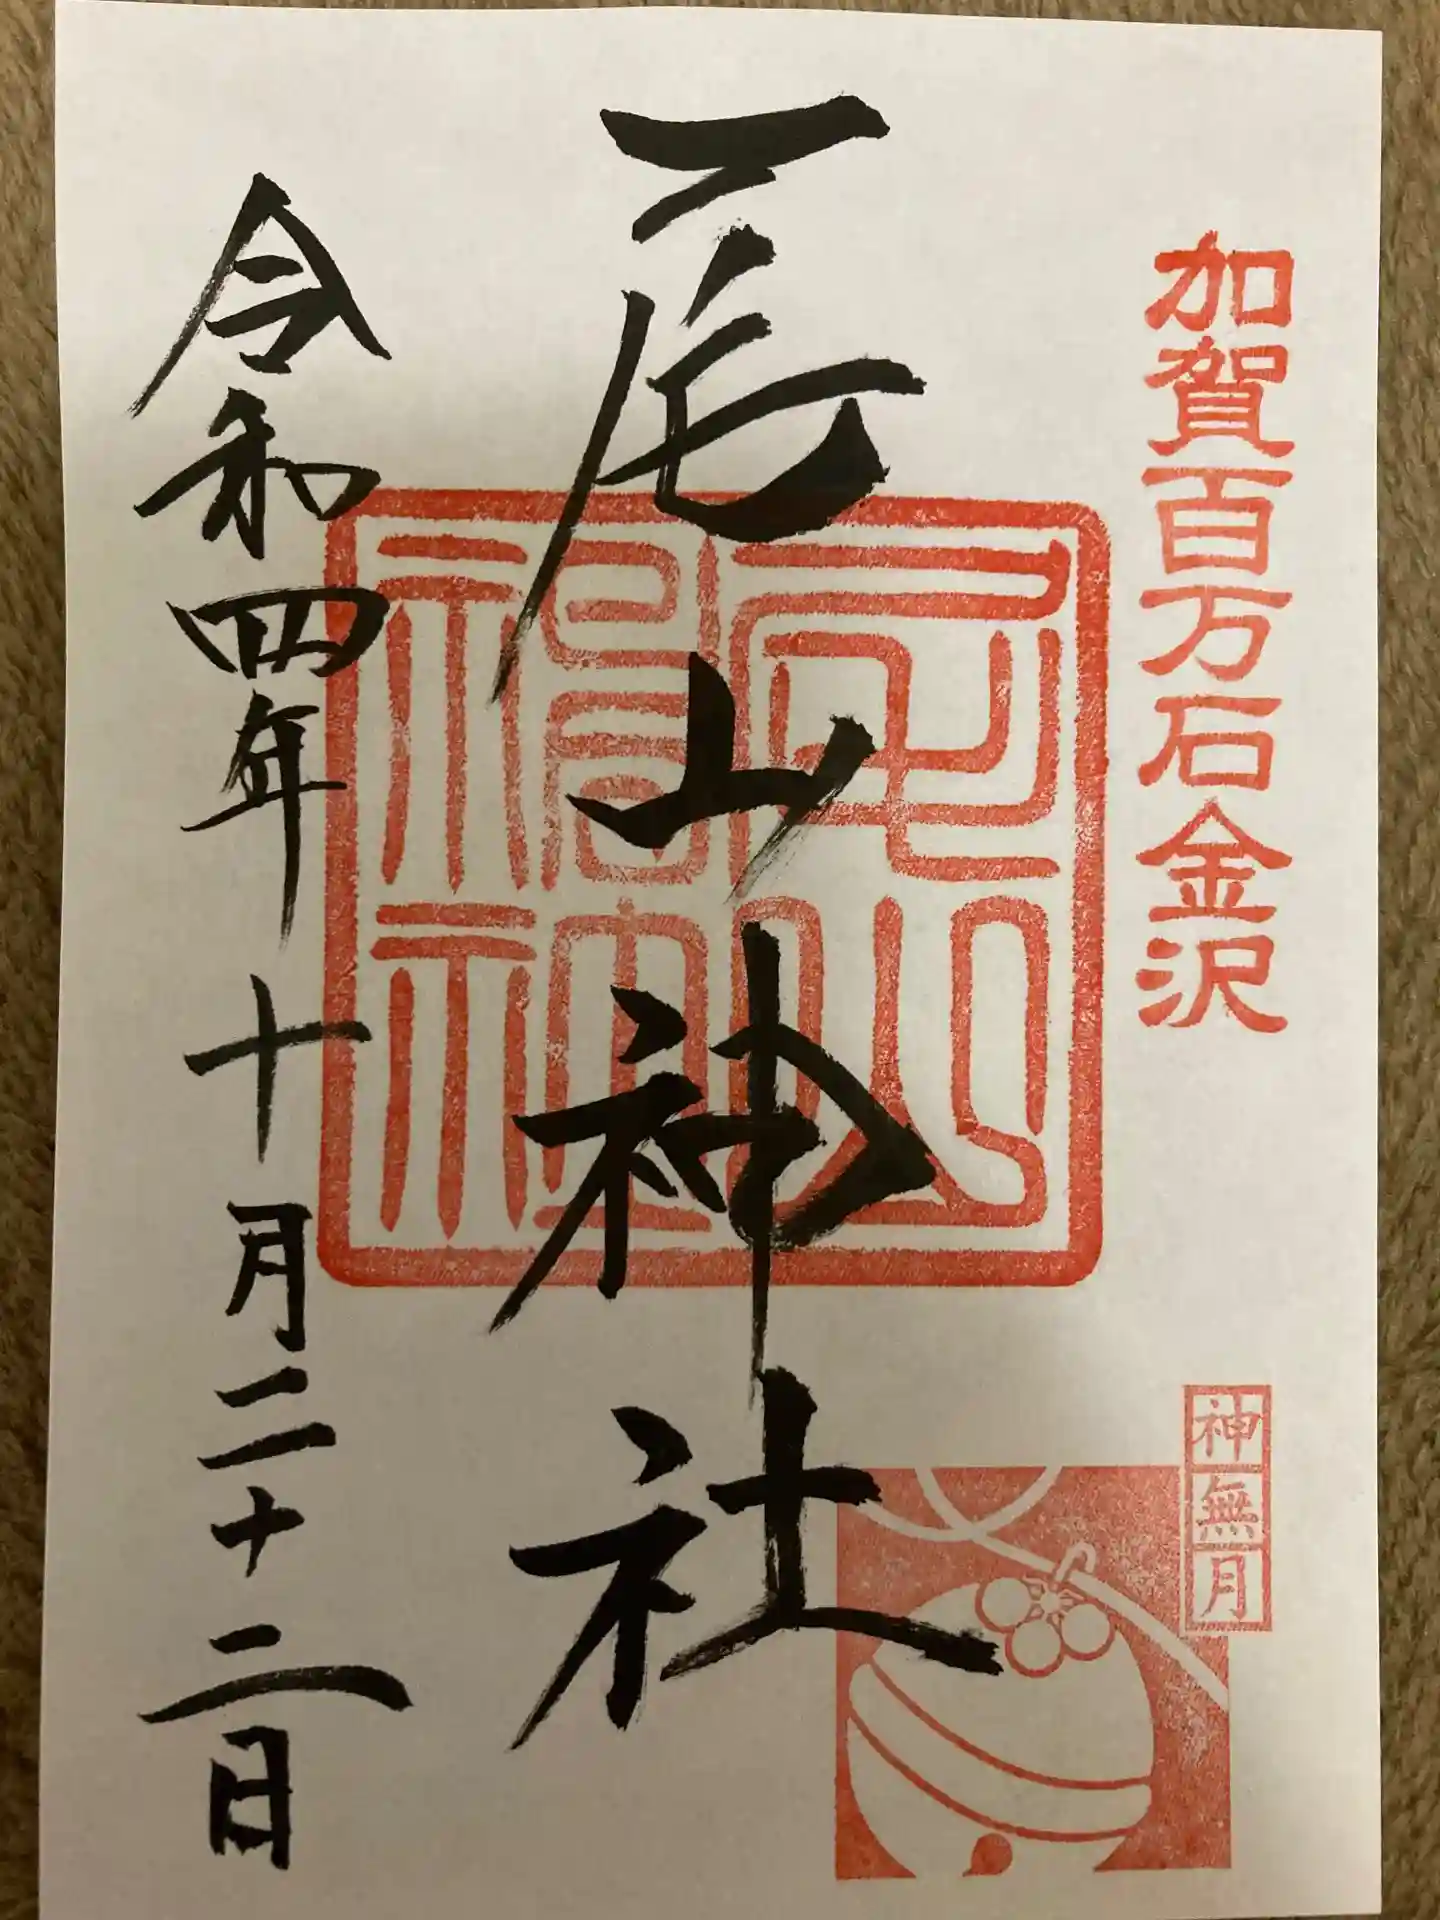 加賀百万石金沢
神無月
尾山神社
尾山神社
令和四年十月二十二日